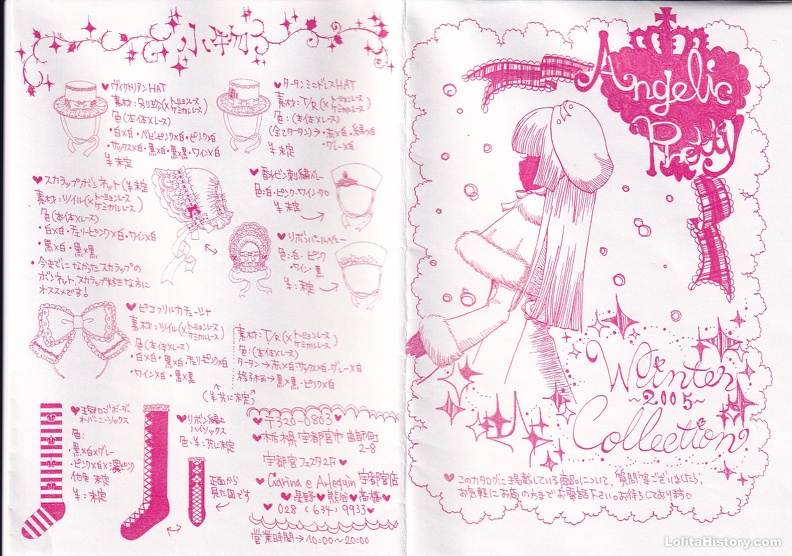 小物
♥ヴィクトリアンHAT
素材:ポリエステル(×トーションレース
ケミカルレース)
色(本体×レース)
・白×白・ベビーピンク×白・ピンク×白
・サックス×白・黒×白・黒×黒・ワイン×白
¥:未定
♥タータンミニドレスHAT
素材:T/R(×トーションレース
ケミカルレース)
色:(本体×レース)
(全てタータン)→・赤×白・
・グレー×白
¥:未定
♥スカラップボンネット(¥:未定
素材:ツイル(×トーションレース
ケミカルレース)
色(本体×レース)
・白×白・チェリーピンク×白・ワイン×白
・黒×白・黒×黒
・今までになかったスカラップの
ボンネット。スカラップ好きな方に
オススメです!
刺繍ベレー
色:白・ピンク・ワイン・クロ
¥:未定
♥リボンパールベレー
色:白・ピンク
ワイン・黒
¥:未定
♥ピコフリルカチューシャ
素材:ツイル(×トーションレース
ケミカルレース)
色(本体×レース)
・白×白・黒×白・チェリーピンク×白
・ワイン×白・黒×黒
素材:T/R(×トーションレース
ケミカルレース)
色:(本体×レース)
タータン→赤×白・サックス×白・グレー×白
格子柄→黒×黒・ピンク×白
(¥共に未定)
♥王冠ロゴボーダー
オーバーニーソックス
色:
黒×白×グレー
・ピンク×白×濃ピンク
他色 未定
¥:未定
♥リボン編上
ハイソックス
色・¥:共に未定
正面から
見た図です
♥〒320-0803♥
♥栃木県宇都宮市曲師町
2-8
宇都宮フェスタ2F
♥Carina e Arlequin 宇都宮店
♥星野♥熊谷♥高橋♥
♥028(634)9933♥
営業時間→10:00~20:00
Angelic
Pretty
Winter
~2005~
Collection
♥このカタログに掲載している商品について、質問等ございましたら、
お気軽にお店の方までお電話下さい。お待ちしております♡
LolitaHistory.com